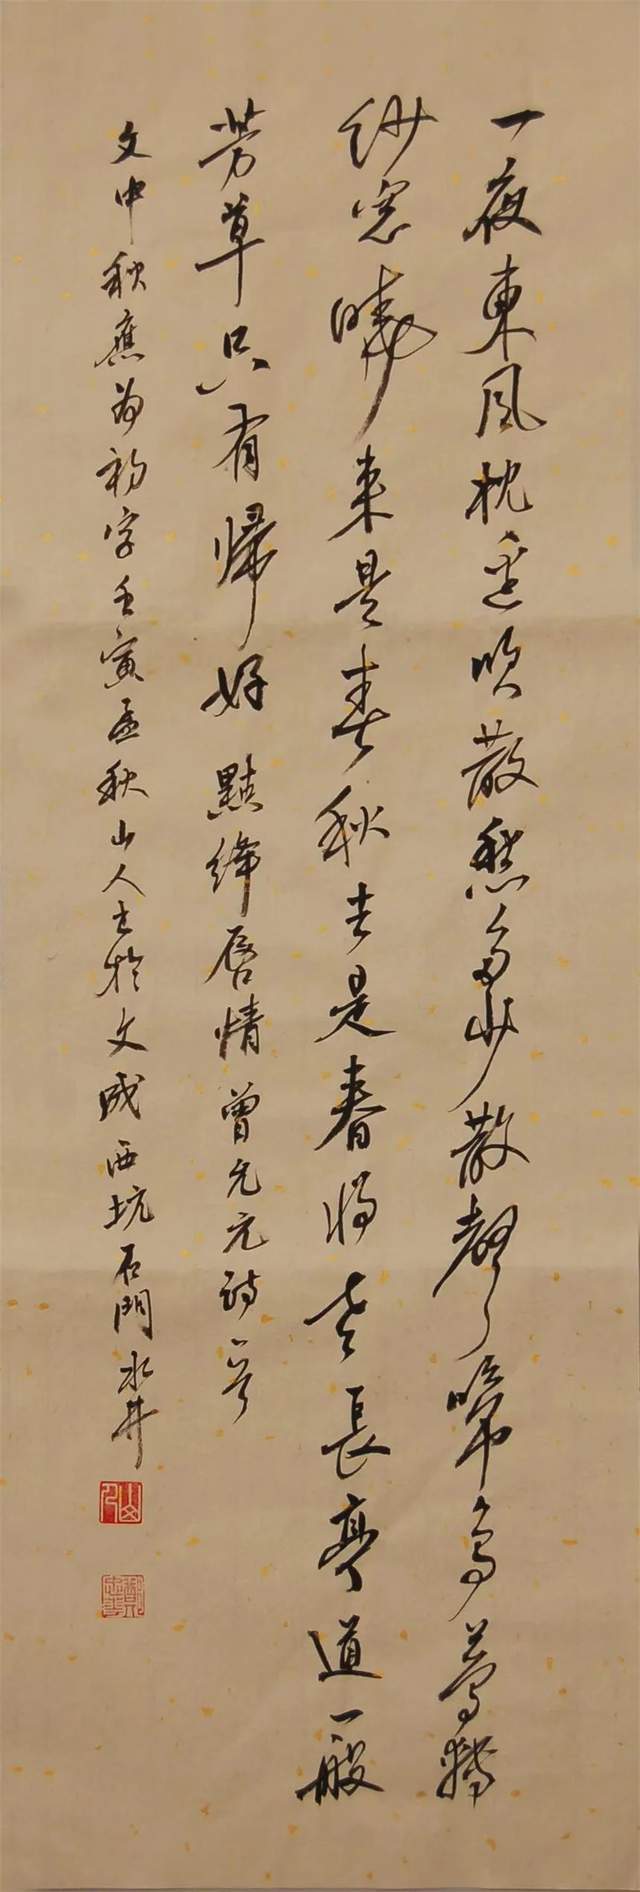 一夜東風枕邊吹散愁多少數聲啼鳥夢轉
紗窓曉來是春秋去是春將老長亭道一般
芳草只有歸好 點絳唇情曾允元詩一首
文中秋應為初字壬寅孟秋山人書於文成西坑石門水井